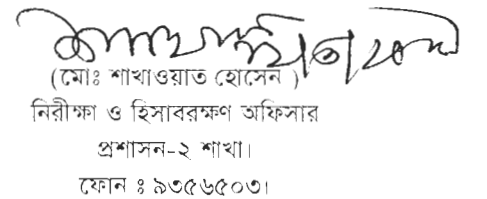 (মোঃ শাখাওয়াত হোসেন )
নিরীক্ষা ও হিসাবরক্ষণ অফিসার
প্রশাসন-২ শাখা।
ফোন ঃ ৯৩৫৬৫০৩।